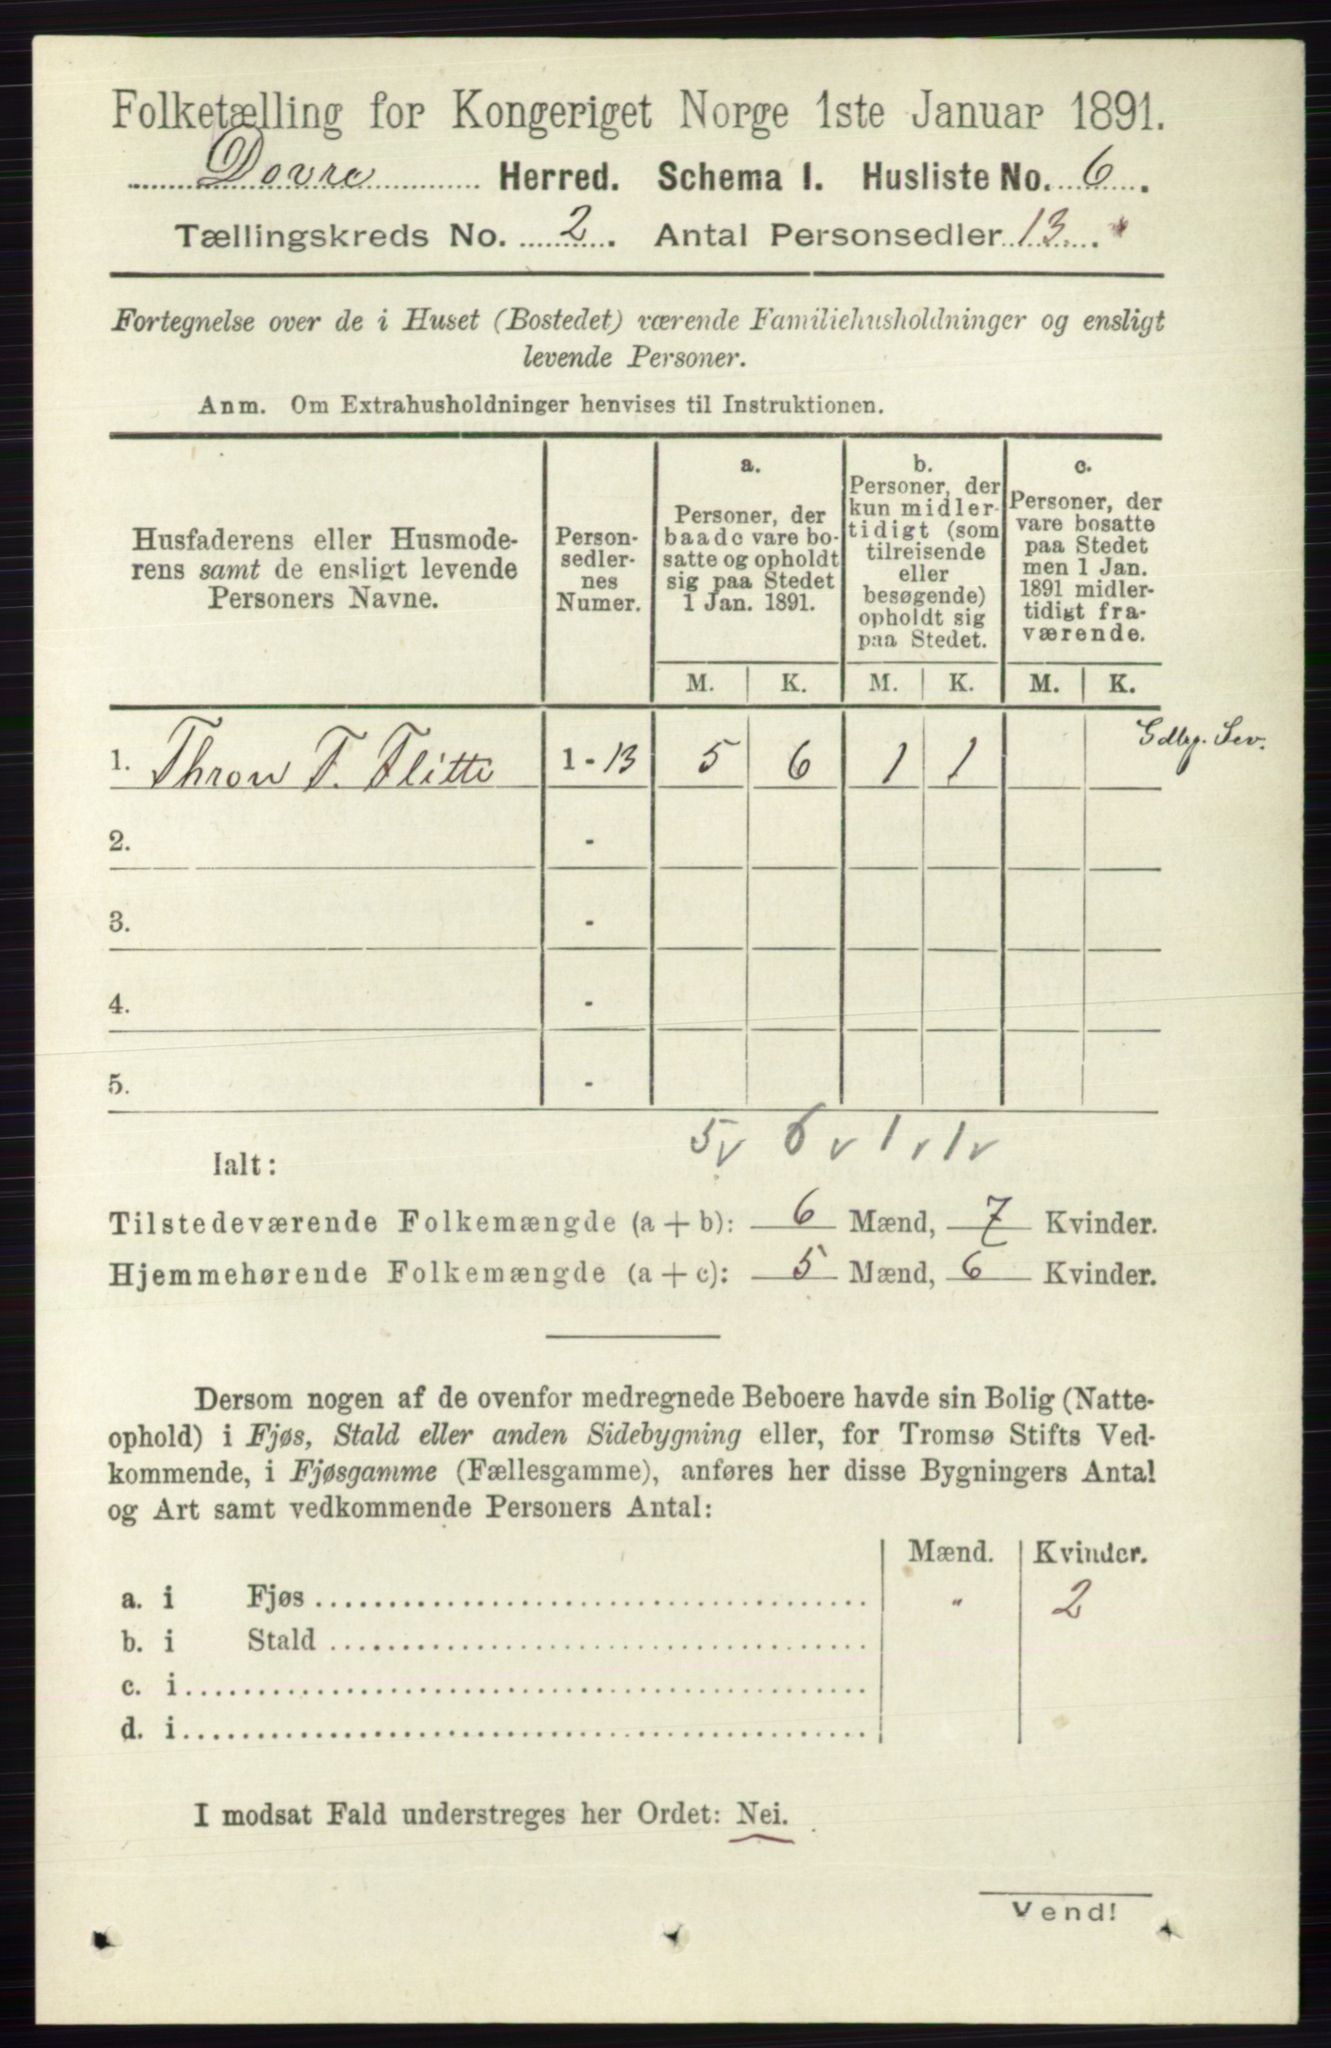 Folketælling for Kongeriget Norge 1ste Januar 1891.
Dovre Herred. Schema I. Husliste No. 6.
Tællingskreds No. 2. Antal Personsedler 13.
Fortegnelse over de i Huset (Bostedet) værende Familiehusholdninger og ensligt
levende Personer.
Anm. Om Extrahusholdninger henvises til Instruktionen.
Husfaderens eller Husmode-
rens samt de ensligt levende
Personers Navne.
Person-
sedler-
nes
Numer.
a.
Personer, der
baade vare bo-
satte og opholdt
sig paa Stedet
1 Jan. 1891.
b.
Personer, der
kun midler-
tidigt (som
tilreisende
eller
besøgende)
opholdt sig
paa Stedet.
c.
Personer, der
vare bosatte
paa Stedet
men 1 Jan.
1891 midler-
tidigt fra-
værende.
M. K. M. K. M. K.
1. Thron T. Flitti 1 - 13 5 6 1 1
2. -
3. -
4. -
5. -
5v 6v 1v 1v
Ialt:
Tilstedeværende Folkemængde (a + b): 6 Mænd, 7 Kvinder.
Hjemmehørende Folkemængde (a + c): 5 Mænd, 6 Kvinder.
Dersom nogen af de ovenfor medregnede Beboere havde sin Bolig (Natte-
ophold) i Fjøs, Stald eller anden Sidebygning eller, for Tromsø Stifts Ved-
kommende, i Fjøsgamme (Fællesgamme), anføres her disse Bygningers Antal
og Art samt vedkommende Personers Antal:
Mænd. Kvinder.
a. i Fjøs " 2
b. i Stald
c. i
d. i
I modsat Fald understreges her Ordet: Nei.
Vend!